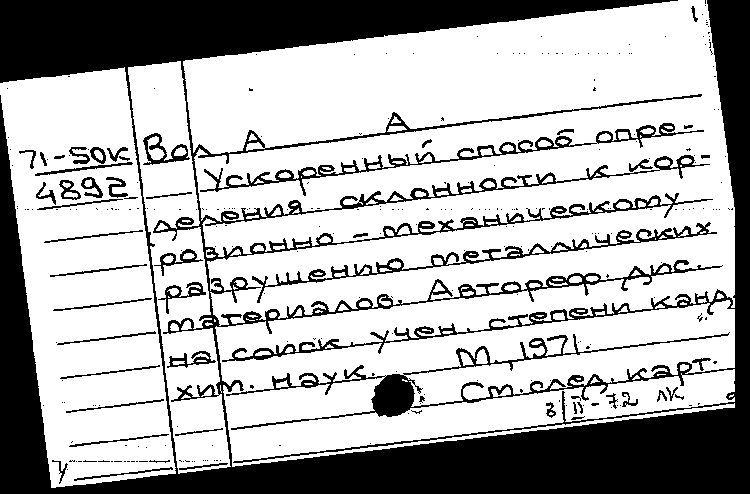 1
71-50К Вол, А А
4892 Ускоренный способ опре-
деления склонности к кор-
розионно - механическому
разрушению металлических
материалов. Автореф. дис.
на соиск. учен. степени канд.
хим. наук. М., 1971.
См. след. карт.
3/II-72 ЛК
У